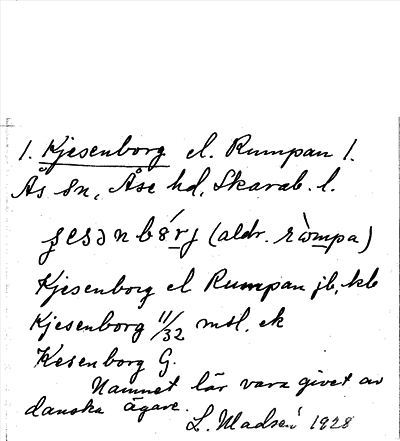 1. Kjesenborg el. Rumpan 1.
Ås sn, Åse hd, Skarab. l.
(aldr. ròmpa)
Kjesenborg el Rumpan jb, kb
Kjesenborg 11/32 mtl, ek
Kesenborg G.
Namnet lär vara givet av
danska ägare.
L. Madsén 1928